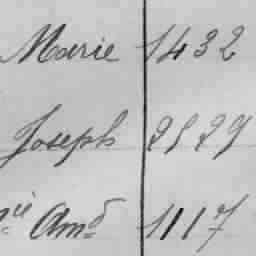 Marie 1432
Joseph 2529
cie Amd 1117